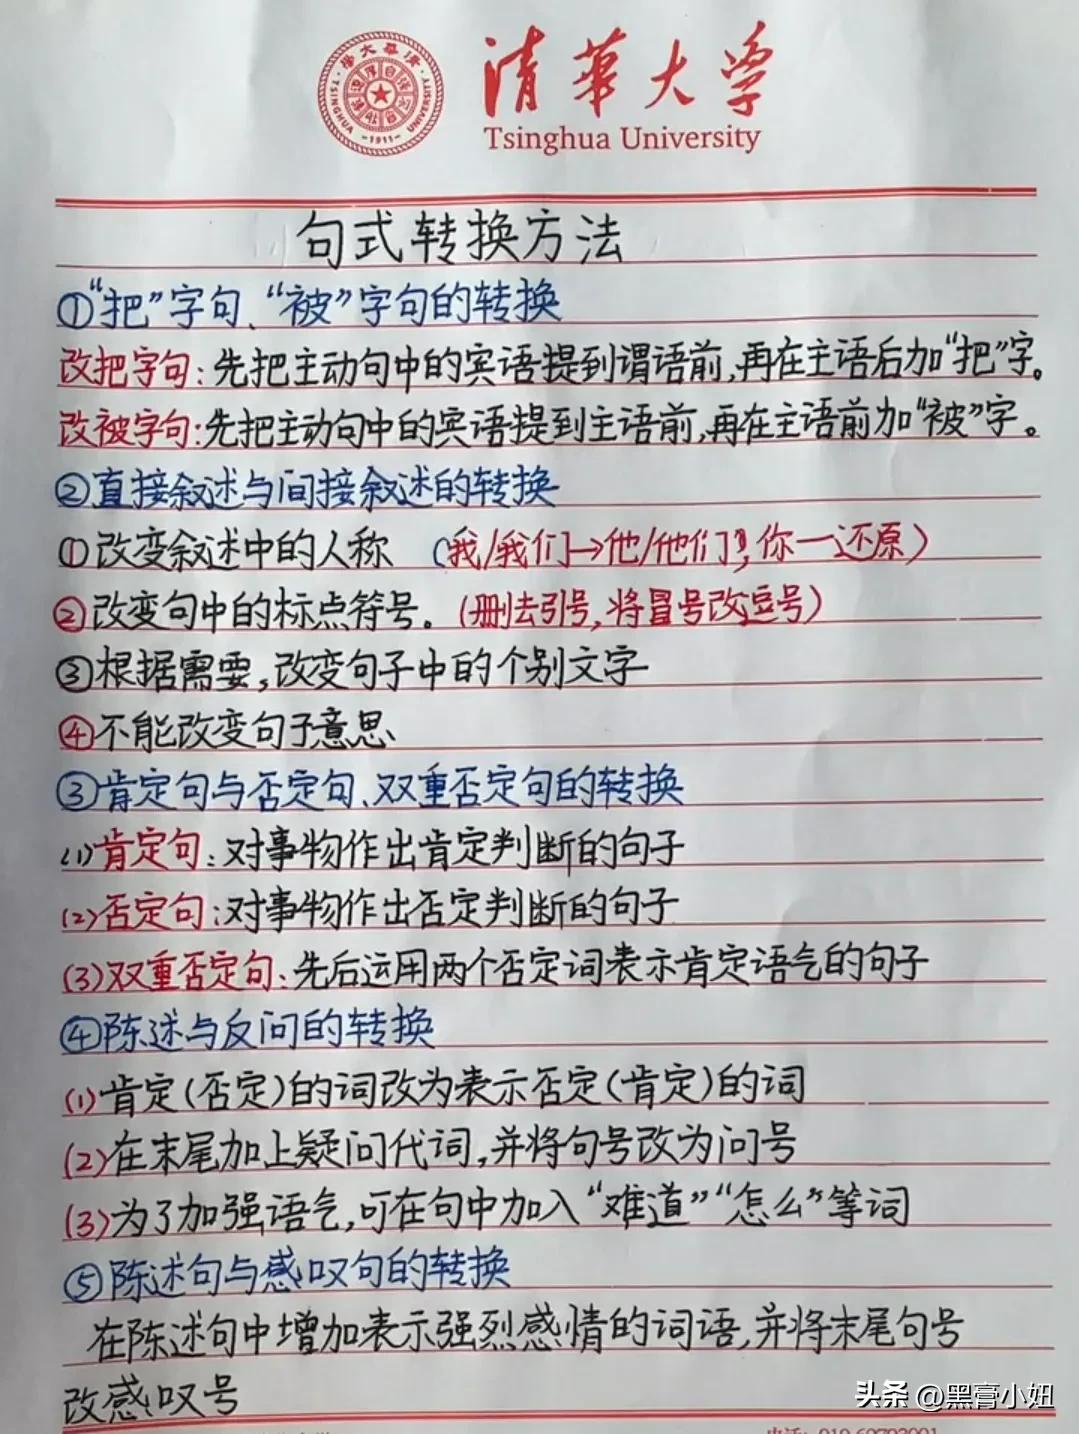 清华大学
Tsinghua University
句式转换方法
①“把”字句、“被”字句的转换
改把字句:先把主动句中的宾语提到谓语前,再在主语后加“把”字。
改被字句:先把主动句中的宾语提到主语前,再在主语前加“被”字。
②直接叙述与间接叙述的转换
①改变叙述中的人称 (我/我们→他/他们,你—还原)
②改变句中的标点符号。(删去引号,将冒号改逗号)
③根据需要,改变句子中的个别文字
④不能改变句子意思
③肯定句与否定句、双重否定句的转换
(1)肯定句:对事物作出肯定判断的句子
(2)否定句:对事物作出否定判断的句子
(3)双重否定句:先后运用两个否定词表示肯定语气的句子
④陈述与反问的转换
(1)肯定(否定)的词改为表示否定(肯定)的词
(2)在末尾加上疑问代词,并将句号改为问号
(3)为了加强语气,可在句中加入“难道”“怎么”等词
⑤陈述句与感叹句的转换
在陈述句中增加表示强烈感情的词语,并将末尾句号
改感叹号
头条 @黑膏小妞